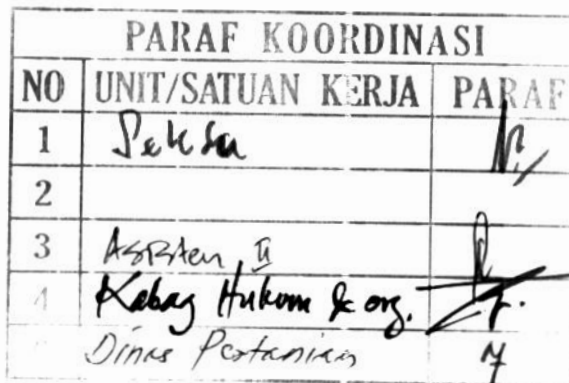 PARAF KOORDINASI
NO UNIT/SATUAN KERJA PARAF
1 Sekda
2
3 Asisten II
4 Kabag Hukum & org.
Dinas Pertanian